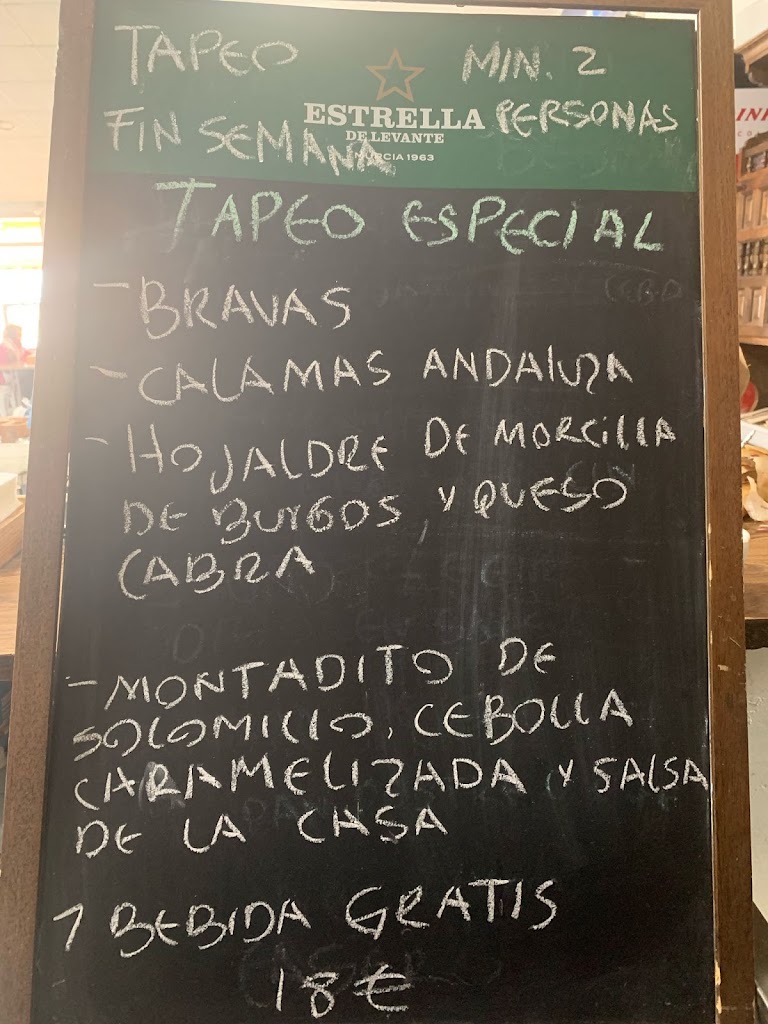 TAPEO MIN. 2
ESTRELLA PERSONAS
DE LEVANTE
FIN SEMANA
1963
TAPEO ESPECIAL
- BRAVAS
- CALAMAS ANDALUZA
- HOJALDRE DE MORCILLA
DE BURGOS Y QUESO
CABRA
- MONTADITO DE
SOLOMILLO, CEBOLLA
CARAMELIZADA Y SALSA
DE LA CASA
1 BEBIDA GRATIS
18€